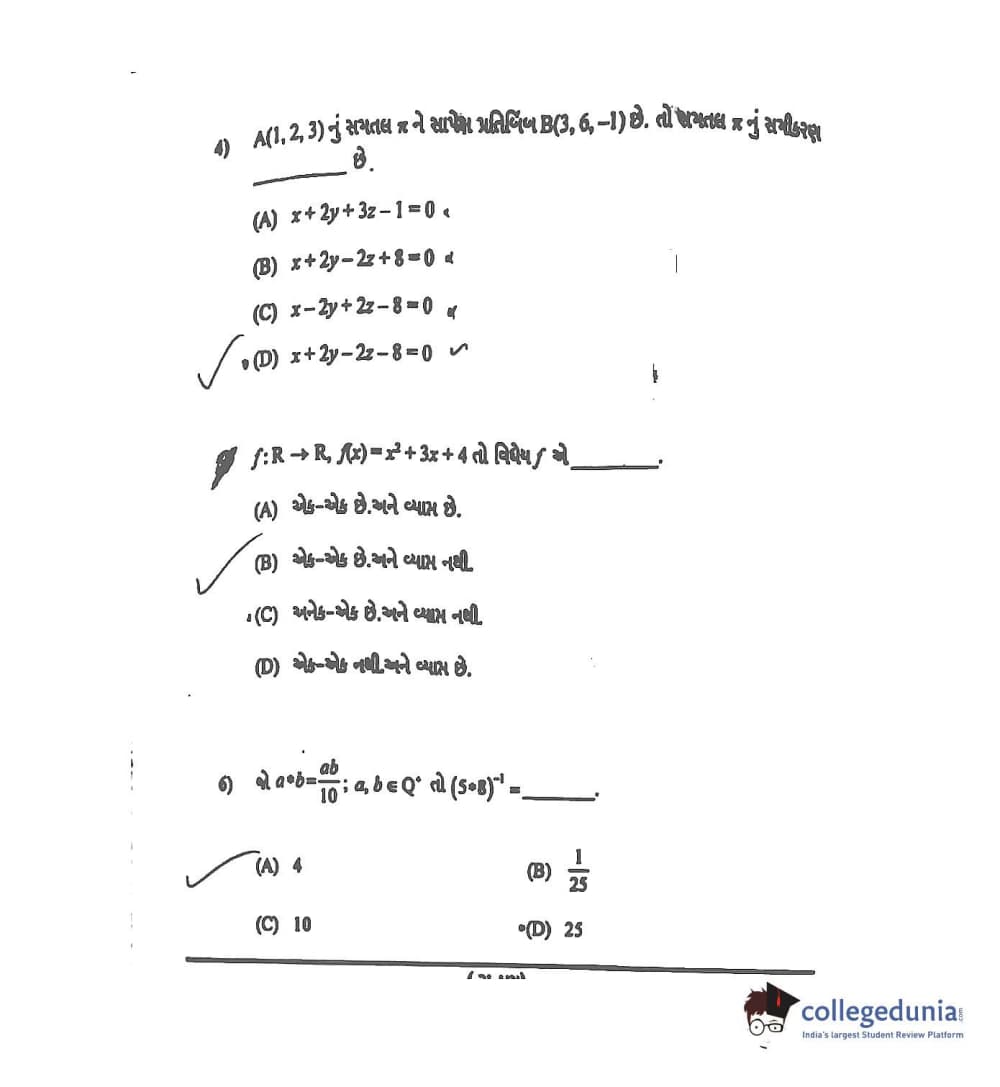 4) A(1, 2, 3) નું સમતલ π ને સાપેક્ષ પ્રતિબિંબ B(3, 6, −1) છે. તો સમતલ π નું સમીકરણ
______ છે.
(A) x + 2y + 3z − 1 = 0
(B) x + 2y − 2z + 8 = 0
(C) x − 2y + 2z − 8 = 0
(D) x + 2y − 2z − 8 = 0
f : R → R, f(x) = x² + 3x + 4 તો વિધેય f એ ______.
(A) એક-એક છે.અને વ્યાપ્ત છે.
(B) એક-એક છે.અને વ્યાપ્ત નથી.
(C) અનેક-એક છે.અને વ્યાપ્ત નથી.
(D) એક-એક નથી.અને વ્યાપ્ત છે.
6) જો a*b = ab/10 ; a, b ∈ Q⁺ તો (5*8)⁻¹ = ______.
(A) 4 (B) 1/25
(C) 10 (D) 25
collegedunia.com
India's largest Student Review Platform